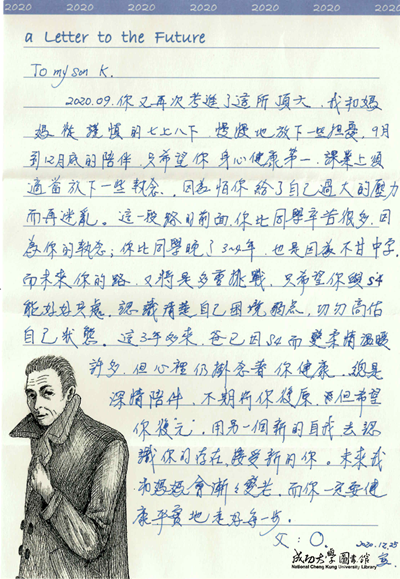 2020 2020 2020 2020 2020 2020 2020
a Letter to the Future
To my son K.
2020.09.你又再次考進了這所頂大,我和媽
媽從謹慎的七上八下,慢慢地放下一些擔憂,9月
到12月底的陪伴,只希望你身心健康第一,課業上須
適當放下一些執念,因為怕你給了自己過大的壓力
而再迷亂。這一段路的前面,你比同學辛苦很多,因
為你的執念;你比同學晚了3~4年,也是因為不甘中字,
而未來你的路,又將是多變挑戰,只希望你與S4
能好好共處,認識清楚自己困境的點,切勿高估
自己狀態。這3年多來,爸已因S4而變柔情溫暖
許多,但心裡仍掛念著你健康,總是
深情陪伴,不期盼你復原,而但希望
你復元,用另一個新的自我去認
識你的存在,接受新的你。未來我
和媽媽會漸漸變老,而你一定要健
康平實地走好每一步。
父:O.
2020.12.25
成功大學圖書館
National Cheng Kung University Library